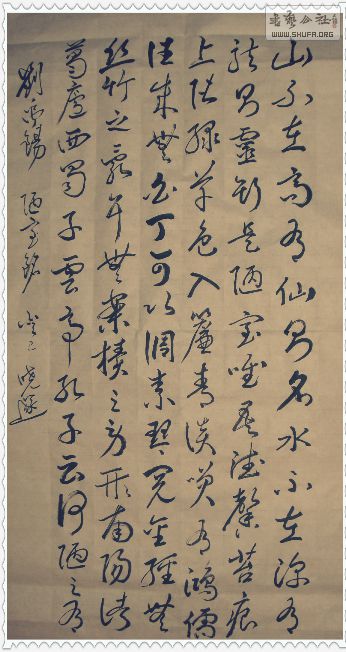 山不在高有仙则名水不在深有
龙则靈斯是陋室唯吾德馨苔痕
上阶绿草色入簾青谈笑有鸿儒
往来無白丁可以调素琴阅金经無
丝竹之乱耳無案牍之劳形南阳诸
葛庐西蜀子雲亭孔子云何陋之有
劉禹锡 陋室铭 晓
书艺公社
WWW.SHUFA.ORG